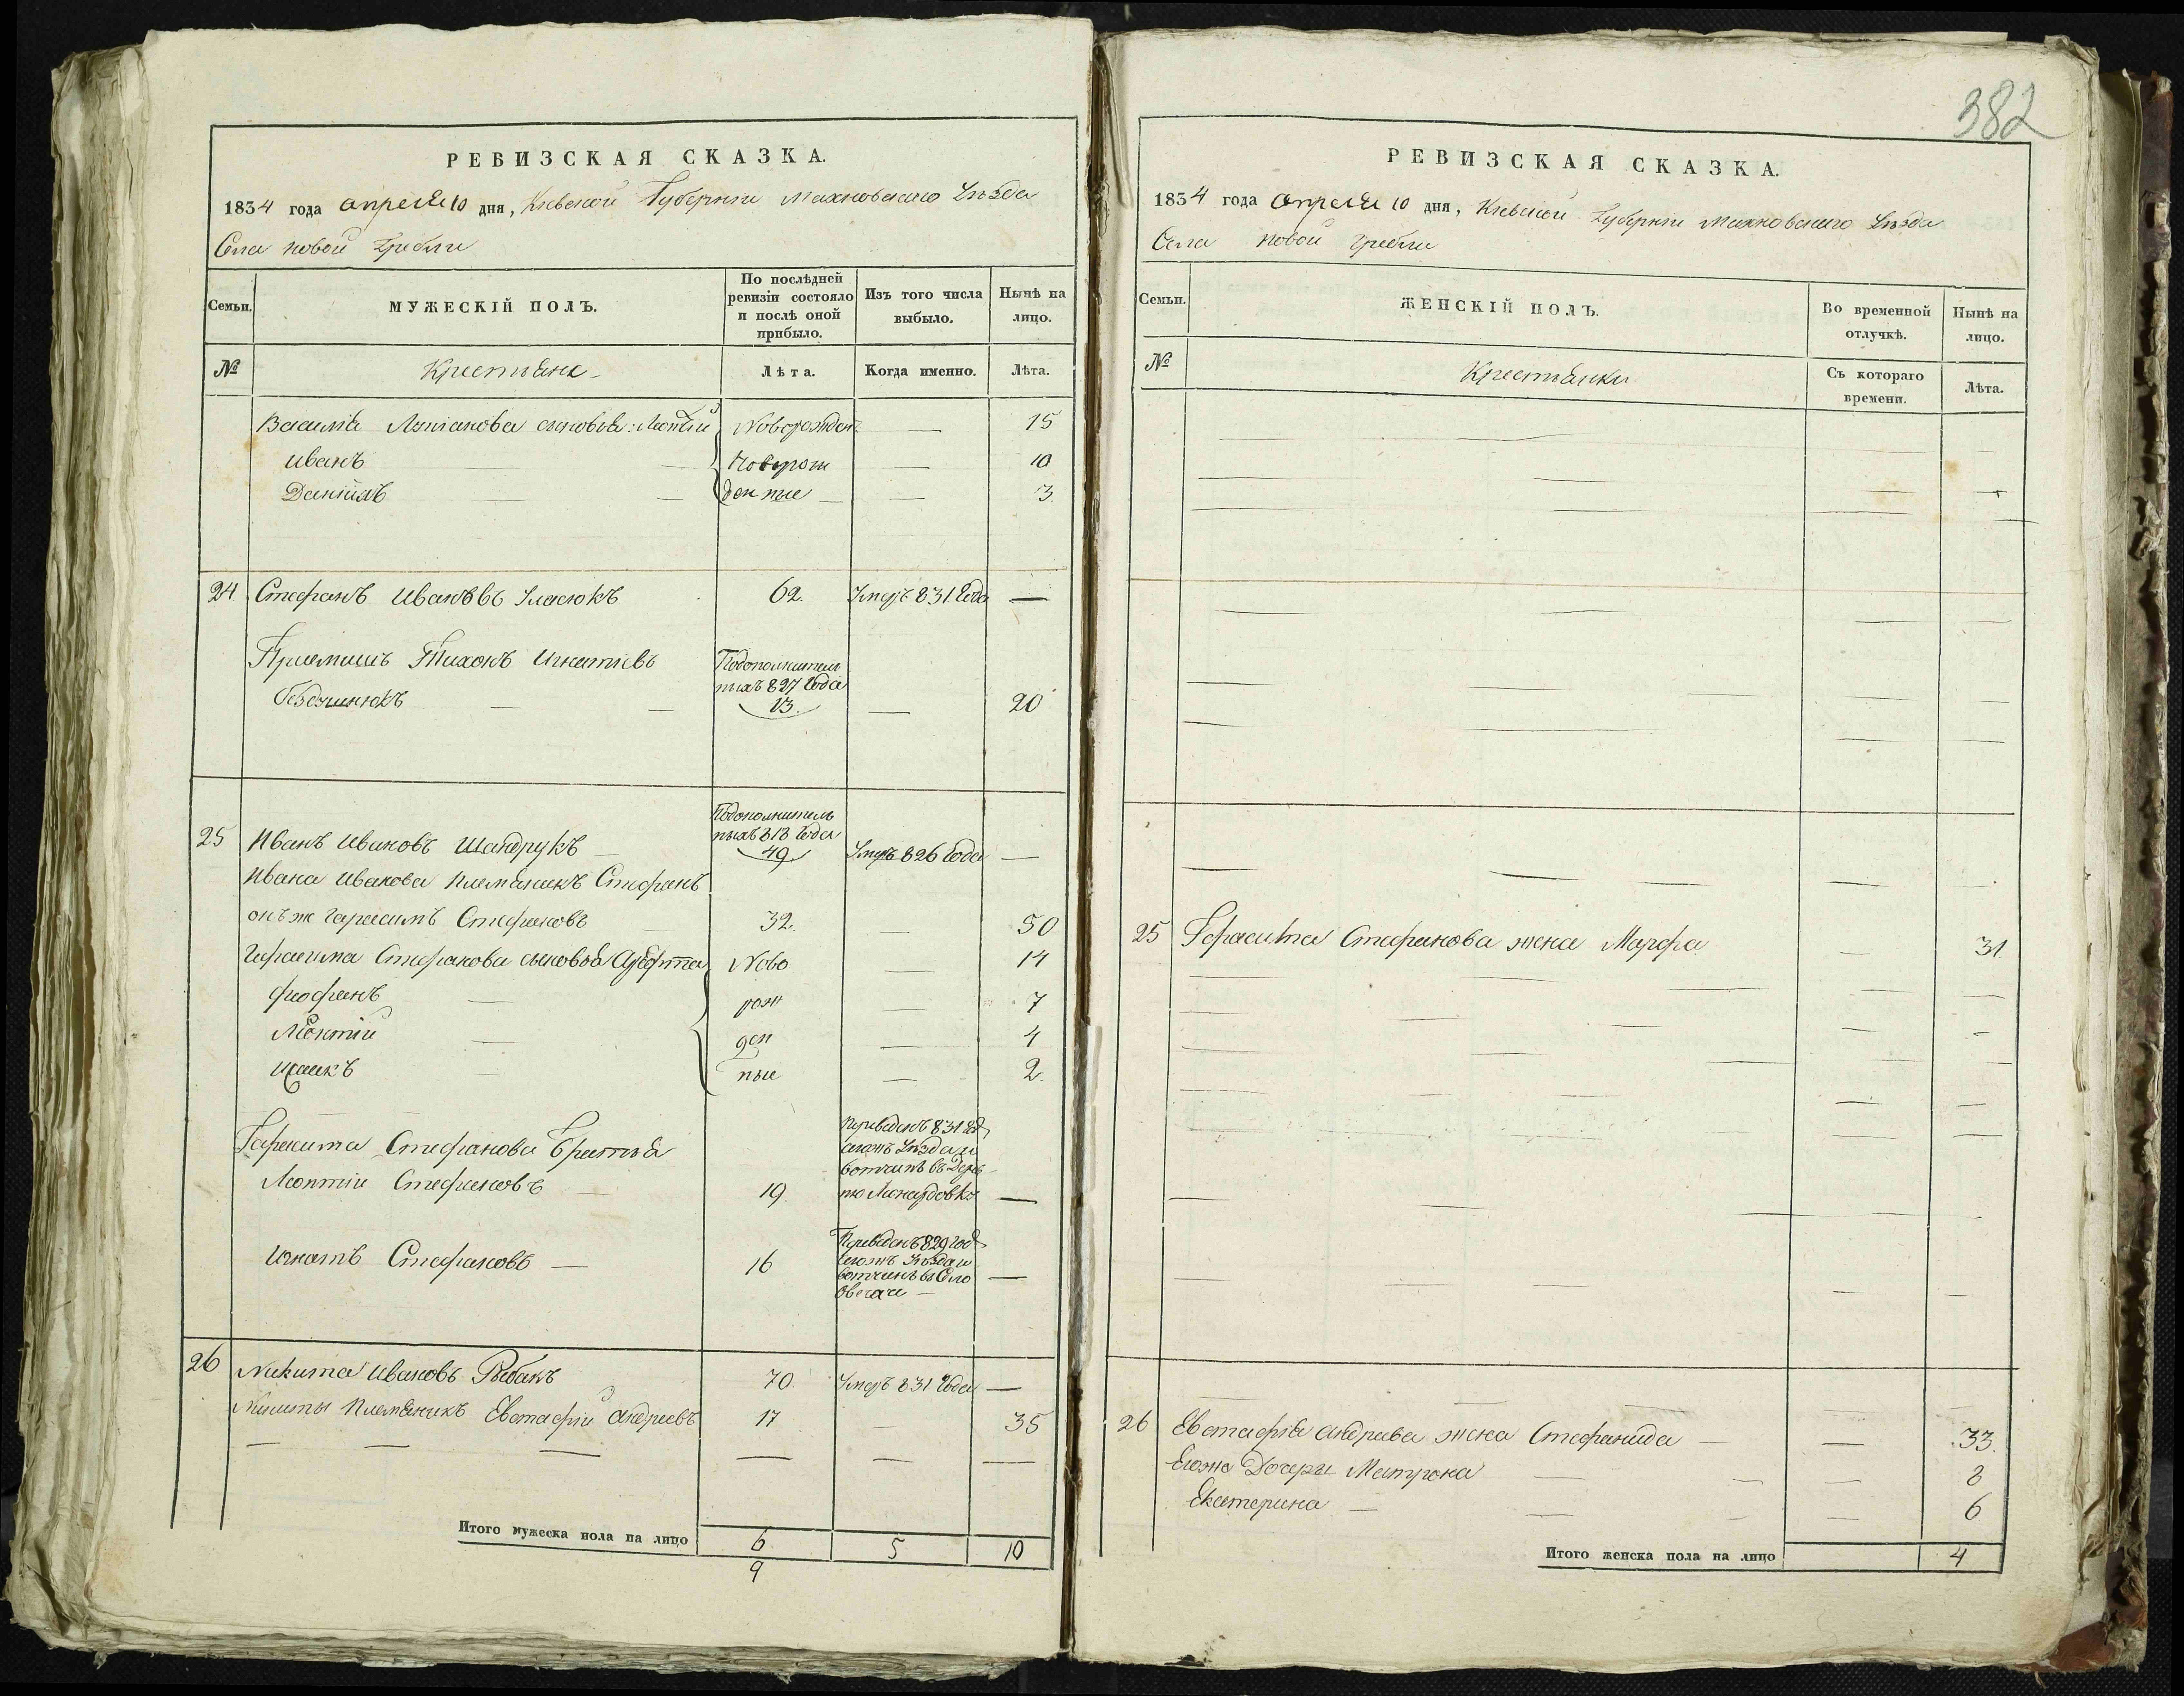 РЕВИЗСКАЯ СКАЗКА.
1834 года апреля 10 дня, Кіевской Губерніи Махновского Уѣзда
Села новой Гребли
Семьи.
МУЖЕСКІЙ ПОЛЪ.
По послѣдней
ревизіи состояло
и послѣ оной
прибыло.
Изъ того числа
выбыло.
Нынѣ на
лицо.
№
Крестьяне
Лѣта.
Когда именно.
Лѣта.
Василія сыновья: Новорожден — 15
Иванъ — Новорож — 10
Даніилъ — — денные — — 3
24 Стефанъ Ивановъ 62. Умеръ 831 года —
Приемышъ Тихонъ Игнатіевъ Подополнитель
ныхъ 827 года
— — 13 — 20
Подополнитель
25 Иванъ Ивановъ Шандрукъ — ныхъ 818 года
49 Умеръ 826 года —
Ивана Иванова племаникъ Стефанъ
онъ ж Герасимъ Стефановъ 32. — 50
Герасима Стефанова сыновья Ново — 14
Феофанъ — рож — 7
Леонтій — ден — 4
Исаакъ — ные — 2.
Переведенъ 831 год
Герасима Стефанова Братья тогожъ Уѣзда и
вотчинѣ въ Дерев
Леонтіи Стефановъ — 19. ню —
Переведенъ 829 год
Игнатъ Стефановъ — 16 тогожъ Уѣзда и
вотчинѣ въ Село —
26 Никита Ивановъ Рыбакъ 70 Умеръ 831 года —
Никиты племяникъ Евстафій Андреевъ 17 — 35
— — — — — —
Итого мужеска пола на лицо 6 5 10
9
382
РЕВИЗСКАЯ СКАЗКА.
1834 года апреля 10 дня, Кіевской Губерніи Махновского Уѣзда
Села новой гребли
Семьи.
ЖЕНСКІЙ ПОЛЪ.
Во временной
отлучкѣ.
Нынѣ на
лицо.
№
Крестьянки
Съ котораго
времени.
Лѣта.
25 Герасима Стефанова жена Марфа — 31
26 Евстафія Андреева жена Стефанида — — 33.
Егожъ Дочери Матрона — — — 8
Екатерина — — — — 6
Итого женска пола на лицо 4